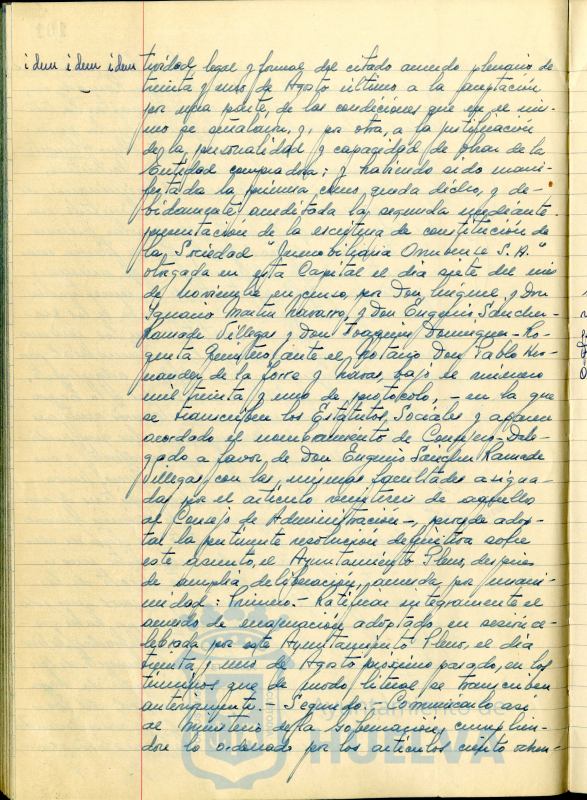 idem idem idem
tividad legal y formal del citado acuerdo plenario de
treinta y uno de Agosto último a la aceptación
por una parte, de las condiciones que en el mis-
mo se señalaron, y, por otra, a la justificación
de la personalidad y capacidad de obrar de la
Entidad compradora; y habiendo sido mani-
festada la primera como queda dicho, y de-
bidamente acreditada la segunda mediante
presentación de la escritura de constitución de
la Sociedad "Inmobiliaria Onubense S.A."
otorgada en esta Capital el día siete del mes
de noviembre en curso, por Don Miguel y Don
Ignacio Martín Navarro, y Don Eugenio Sánchez-
Ramade Villegas y Don Joaquín Domínguez-Ro-
queta Quintero ante el Notario Don Pablo Her-
nández de la Torre y Navas, bajo el número
mil treinta y uno de protocolo, - en la que
se transcriben los Estatutos Sociales y aparece
acordado el nombramiento de Consejero-Dele-
gado a favor de Don Eugenio Sánchez Ramade
Villegas, con las mismas facultades asigna-
das por el artículo veintitres de aquello
al Consejo de Administración -, procede adop-
tar la pertinente resolución definitiva sobre
este asunto, el Ayuntamiento Pleno, después
de amplia deliberación, acuerda por unani-
midad: Primero.- Ratificar íntegramente el
acuerdo de enajenación adoptado en sesión ce-
lebrada por este Ayuntamiento Pleno, el día
treinta y uno de Agosto próximo pasado, en los
términos que de modo literal se transcriben
anteriormente. - Segundo.- Comunicarlo así
al Ministerio de la Gobernación, cumplien-
dose lo ordenado por los artículos ciento ochen-
Ayuntamiento de
HUELVA